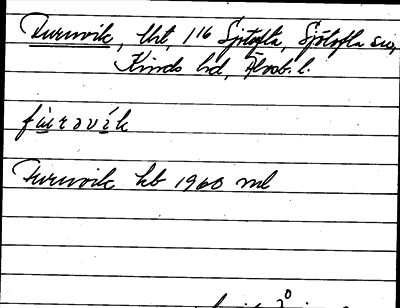 Furuvik, lht, 1/16 Sjötofta, Sjötofta sn,
Kinds hd, Älvsb. l.
fu̲ruvi̲k
Furuvik kb 1960 ml